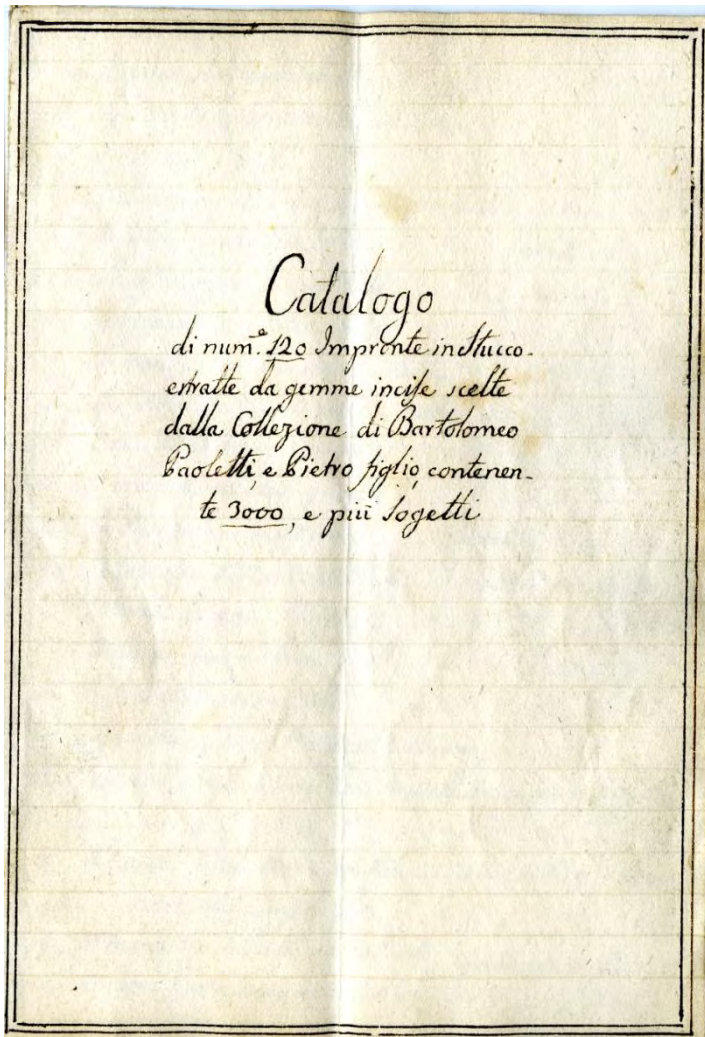 Catalogo
di num.º 120 Impronte in Stucco.
estratte da gemme incise scelte
dalla Collezione di Bartolomeo
Paoletti, e Pietro figlio, contenen-
te 3000, e piū Sogetti